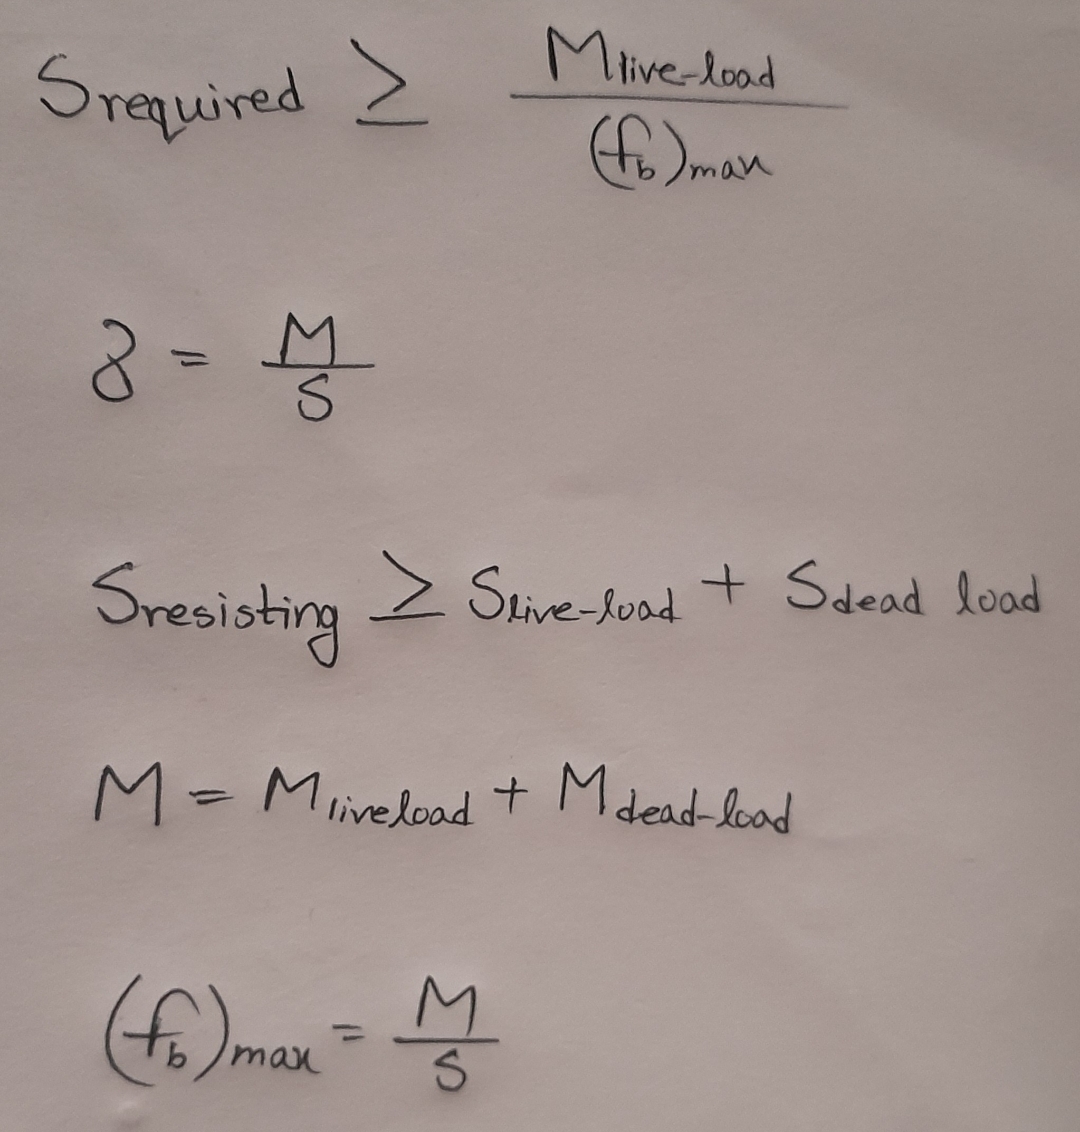 Srequired ≥ Mlive-load / (fb)max
8 = M / S
Sresisting ≥ Slive-load + Sdead load
M = Mliveload + Mdead-load
(fb)max = M / S